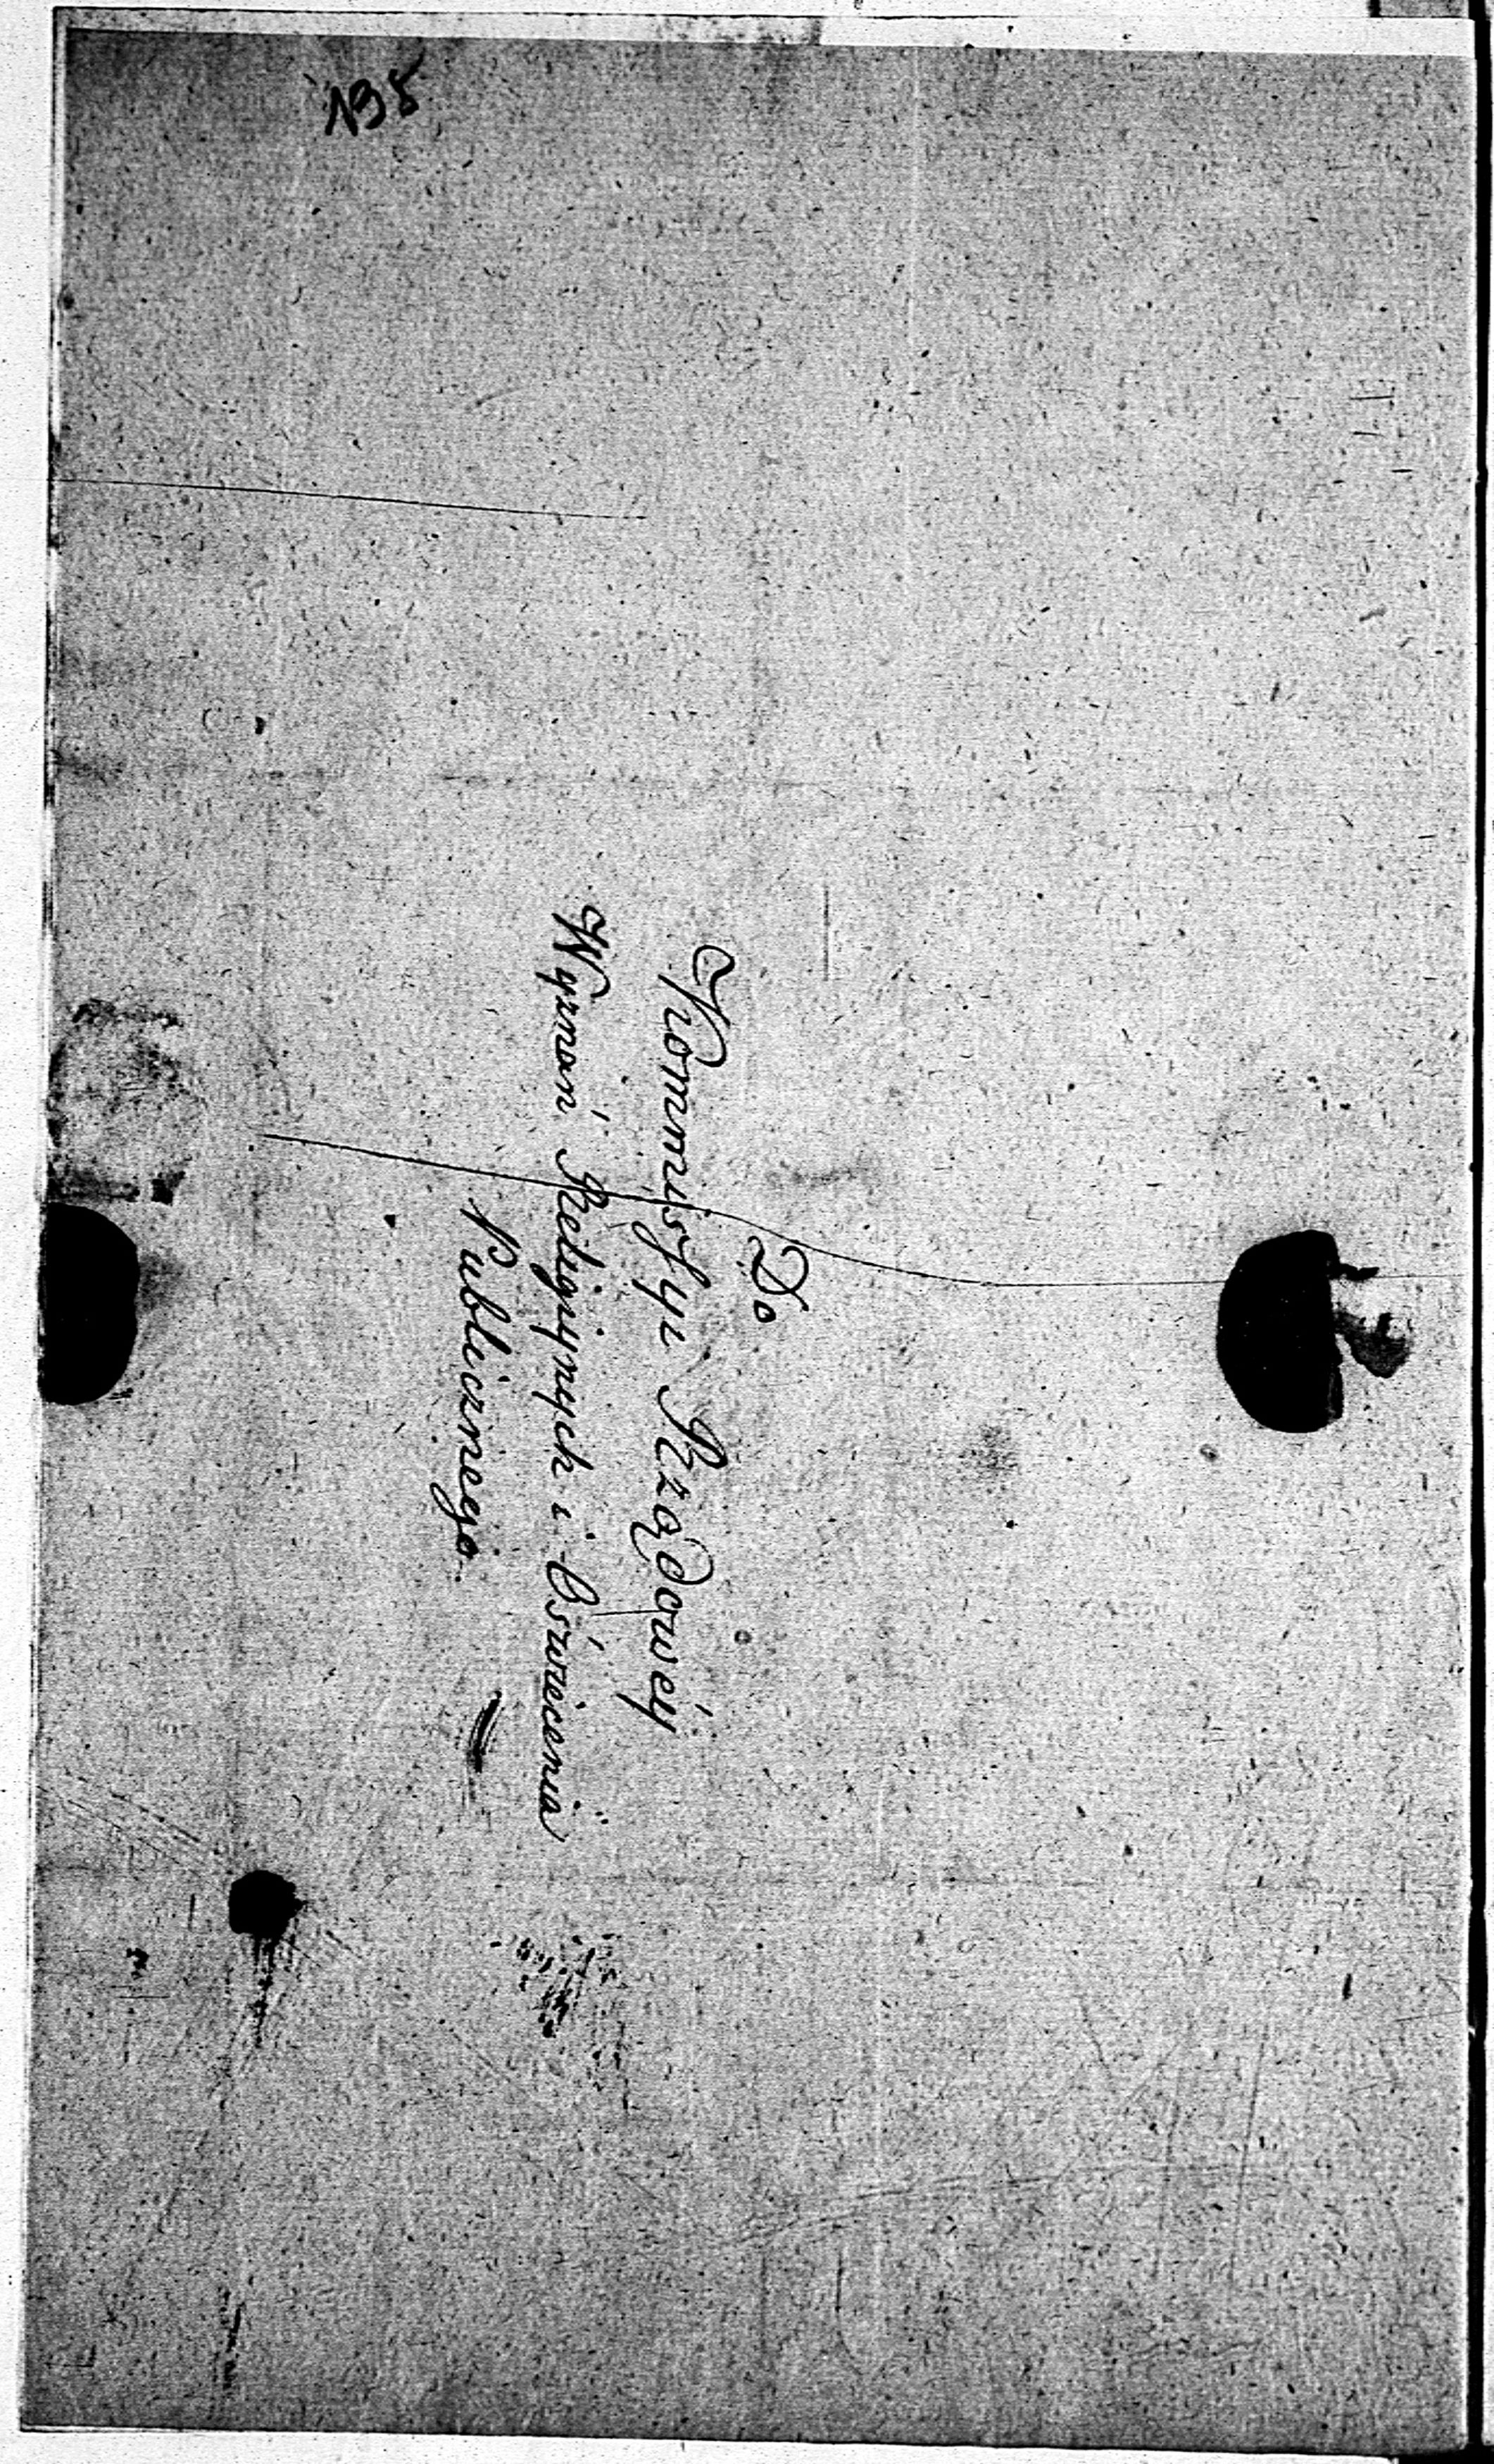 195
Do
Kommissyi Rządowéy
Wyznań Religiynych i Oświecenia
Publicznego